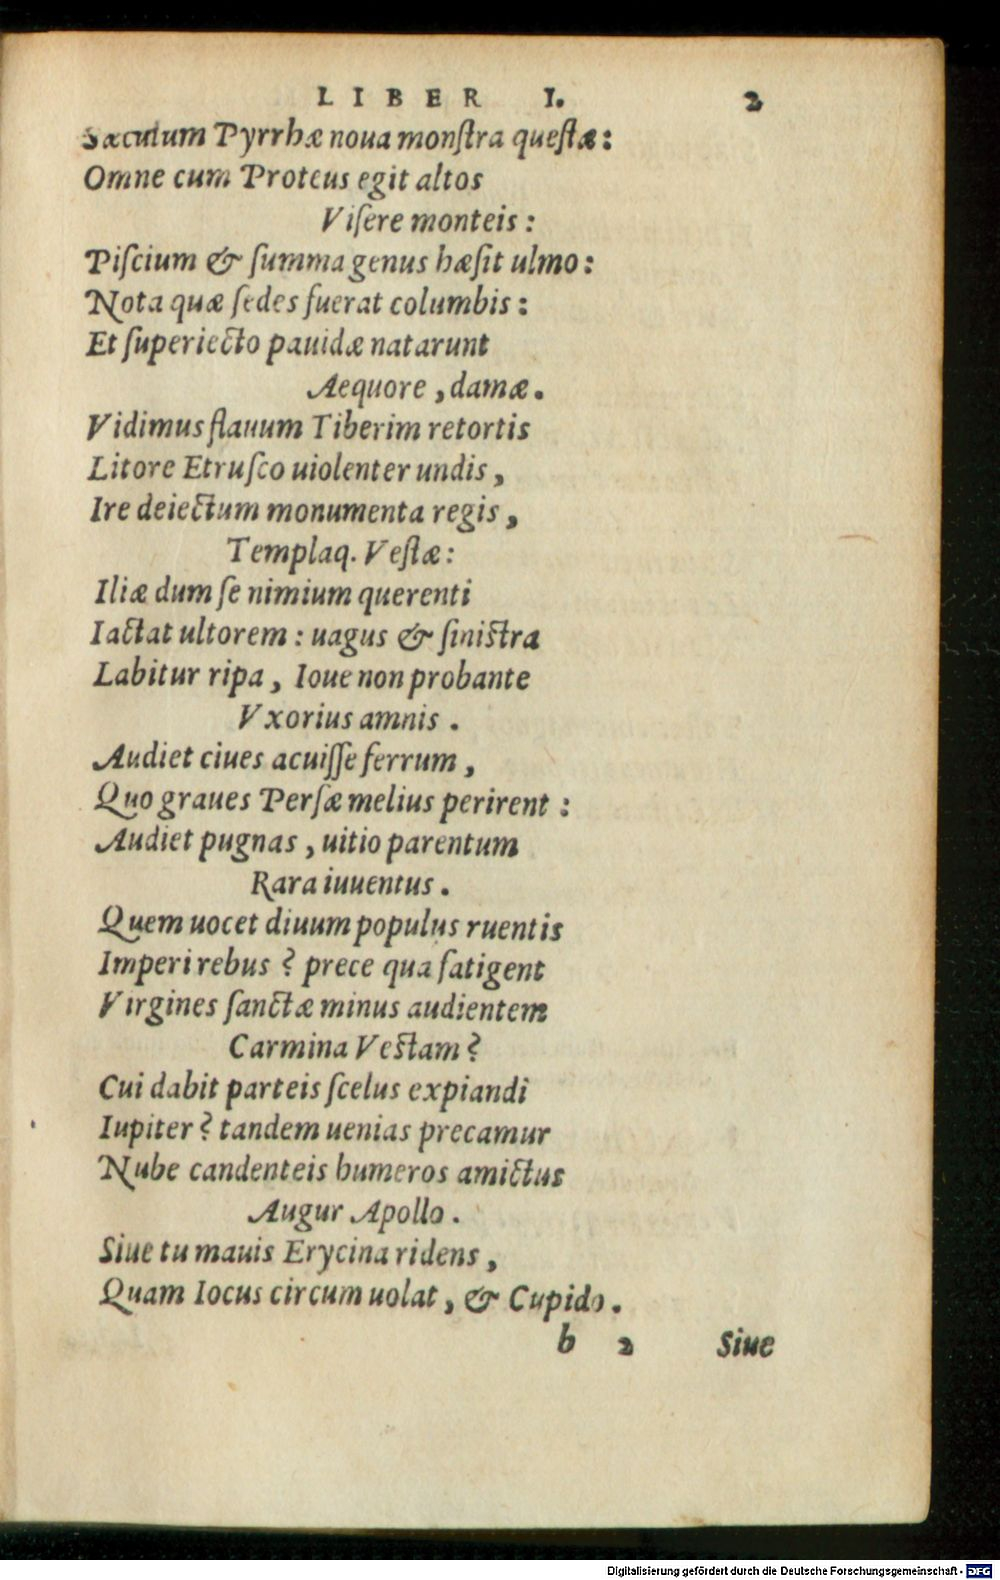 LIBER I. 2
Sæculum Pyrrhæ noua monſtra queſtæ:
Omne cum Proteus egit altos
Viſere monteis:
Piſcium & ſumma genus hæſit ulmo:
Nota quæ ſedes fuerat columbis:
Et ſuperiecto pauidæ natarunt
Aequore, damæ.
Vidimus flauum Tiberim retortis
Litore Etruſco uiolenter undis,
Ire deiectum monumenta regis,
Templaq. Veſtæ:
Iliæ dum ſe nimium querenti
Iactat ultorem: uagus & ſinistra
Labitur ripa, Ioue non probante
Vxorius amnis.
Audiet ciues acuiſſe ferrum,
Quo graues Perſæ melius perirent:
Audiet pugnas, uitio parentum
Rara iuuentus.
Quem uocet diuum populus ruentis
Imperi rebus? prece qua fatigent
Virgines ſanctæ minus audientem
Carmina Vestam?
Cui dabit parteis ſcelus expiandi
Iupiter? tandem uenias precamur
Nube candenteis humeros amictus
Augur Apollo.
Siue tu mauis Erycina ridens,
Quam Iocus circum uolat, & Cupido.
b 2 Siue
Digitalisierung gefördert durch die Deutsche Forschungsgemeinschaft - DFG